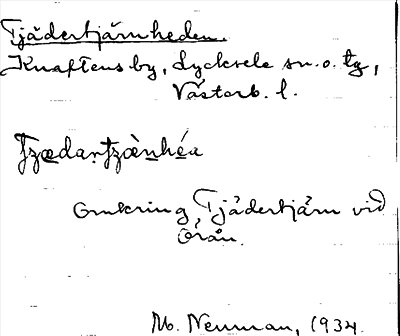 Tjädertjärnheden.
Knaftens by, Lycksele sn. o. tg,
Västerb. l.
Omkring Tjädertjärn vid
Örån.
M. Neuman, 1934.